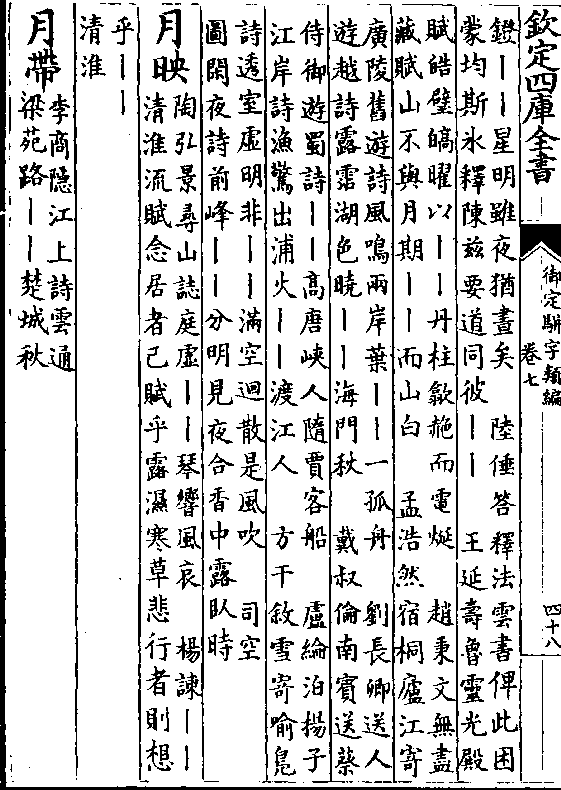 欽定四庫全書
御定駢字類編
卷七
四十八
鐙丨丨星明雖夜猶晝矣 陸倕答釋法雲書俾此困
蒙均斯氷釋陳兹要道同彼丨丨 王延壽魯靈光殿
賦皓壁皜曜以丨丨丹柱歙赩而電烻 趙秉文無盡
藏賦山不與月期丨丨而山白 孟浩然宿桐廬江寄
廣陵舊遊詩風鳴兩岸葉丨丨一孤舟 劉長卿送人
遊越詩露霑湖色曉丨丨海門秋 戴叔倫南賓送蔡
侍御遊蜀詩丨丨高唐峽人隨賈客船 盧綸泊揚子
江岸詩漁驚出浦火丨丨渡江人 方干敘雪寄喻鳧
詩透室虚明非丨丨滿空迴散是風吹 司空
圖閑夜詩前峰丨丨分明見夜合香中露臥時
月映
陶弘景尋山誌庭虚丨丨琴響風哀 楊諫丨丨
清淮流賦念居者已賦乎露濕寒草悲行者則想
乎丨丨
清淮
月帶
李商隱江上詩雲通
梁苑路丨丨楚城秋